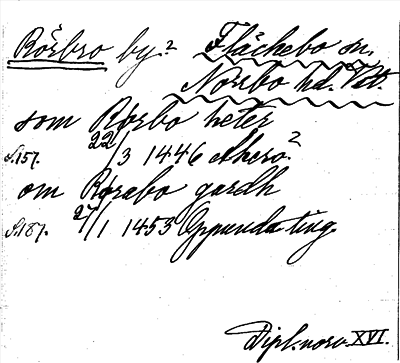 Rörbro by? Fläckebo sn.
Norrbo hd. Vtl.
som Rørbo heter
s. 157. 22/3 1446 Åkerö?
om Rørabo gardh
s. 187. 27/1 1453 Oppunda ting.
Dipl. norv. XVI.